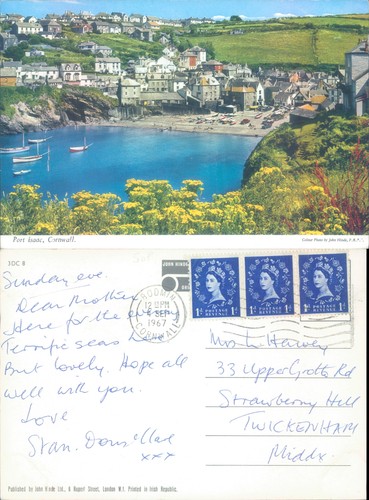 Port Isaac, Cornwall.
Colour Photo by John Hinde, F.R.P.S.
3DC 8
JOHN HINDE
Sunday eve.
Dear Mother
Here for the
Terrific seas
But lovely. Hope all
well with you.
Love
Stan. Doris
xxx
BODMIN
12 15 PM
4 SEP
1967
CORNWALL
1D POSTAGE REVENUE 1D
1D POSTAGE REVENUE 1D
1D POSTAGE REVENUE 1D
Mrs L Harvey
33 Upper Grotto Rd
Strawberry Hill
TWICKENHAM
Middx.
Published by John Hinde Ltd., 6 Rupert Street, London W.1. Printed in Irish Republic.